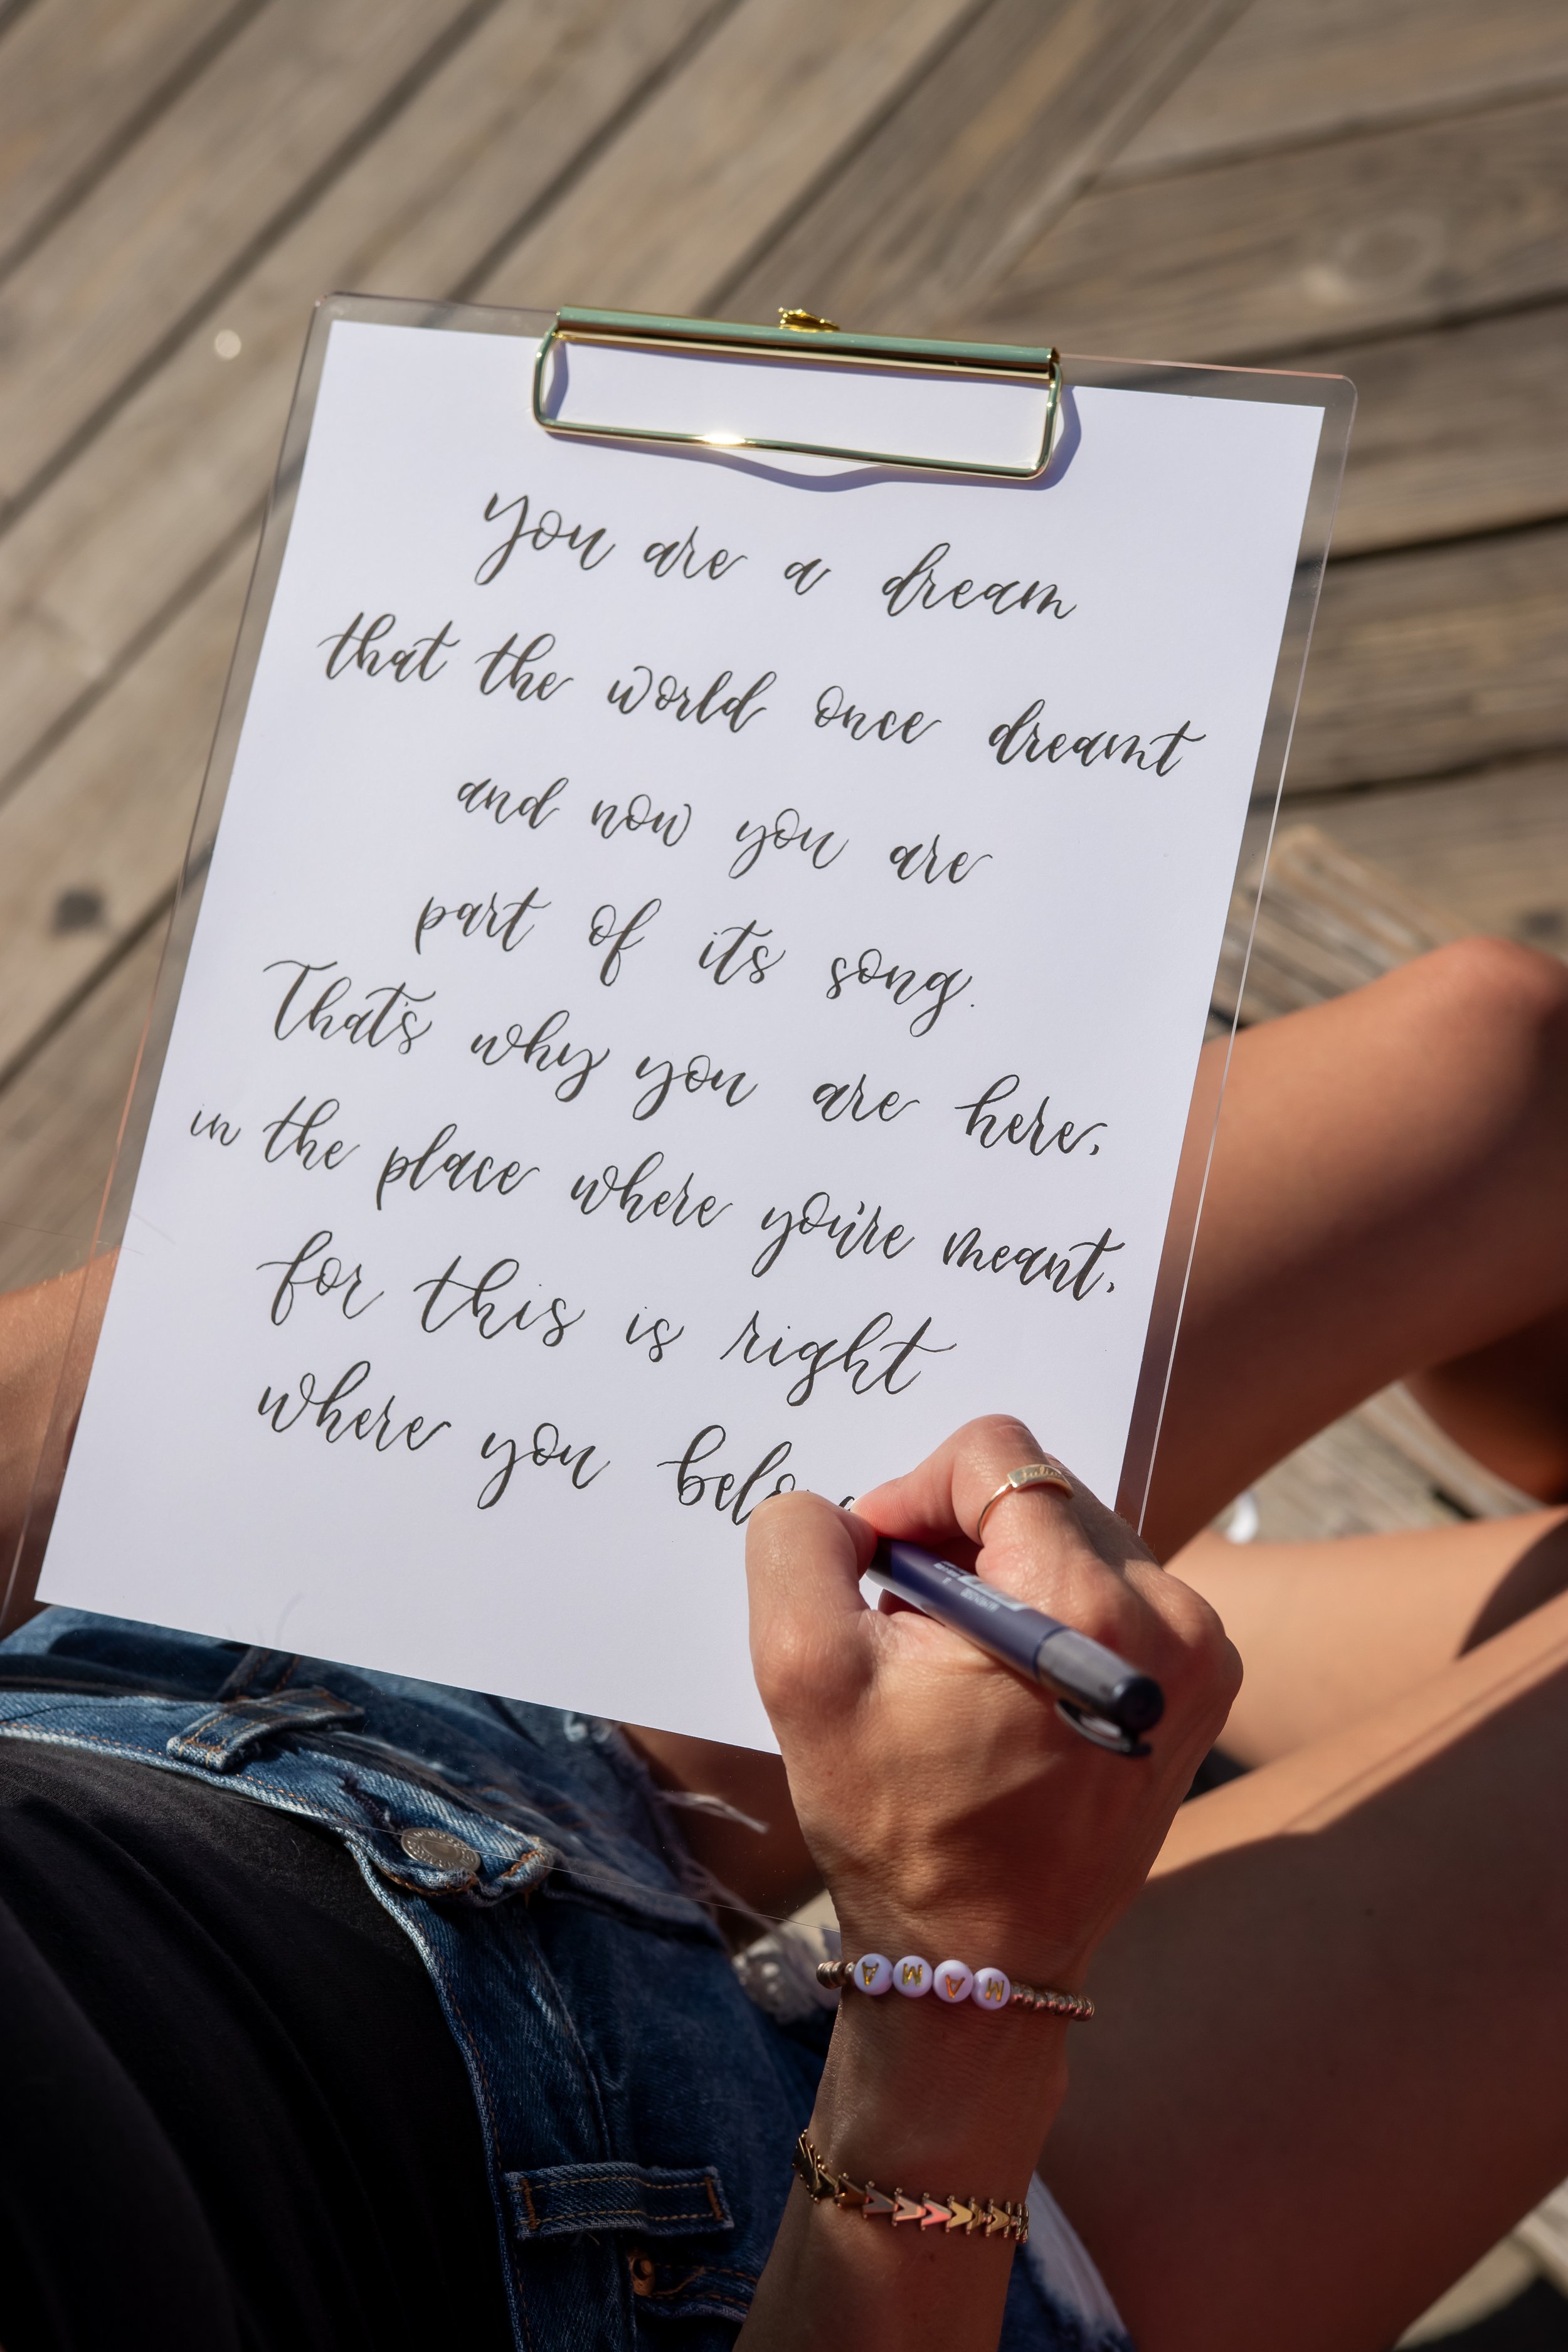 You are a dream
that the world once dreamt
and now you are
part of its song.
That's why you are here,
in the place where you're meant,
for this is right
where you belong
MAMA